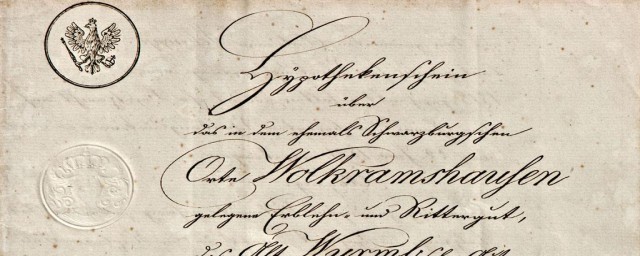 Hÿpothekenschein
über
das in dem ehemals Schwarzburgschen
Orte Wolkramshausen
gelegene Erblehn- und Rittergut,
das